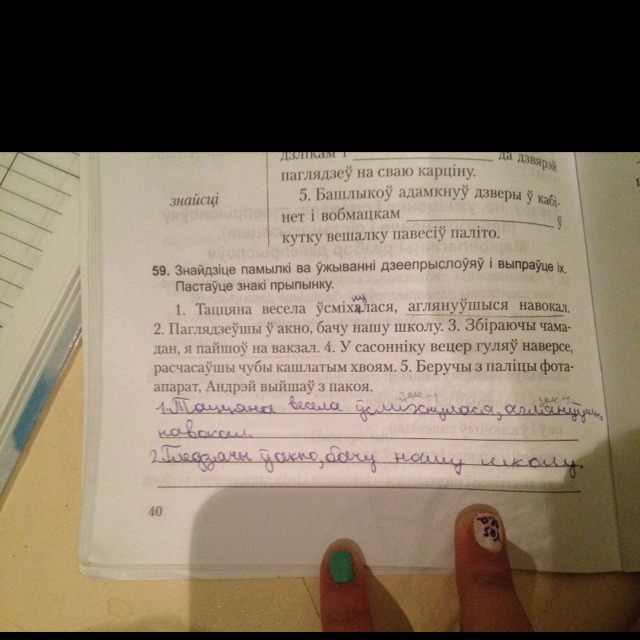 дзлікам і ____ да дзвярэй
паглядзеў на сваю карціну.
знайсці
5. Башлыкоў адамкнуў дзверы ў кабі-
нет і вобмацкам ____ ў
кутку вешалку павесіў паліто.
59. Знайдзіце памылкі ва ўжыванні дзеепрыслоўяў і выпраўце іх.
Пастаўце знакі прыпынку.
1. Таццяна весела ўсміхалася, аглянуўшыся навокал.
ну
2. Паглядзеўшы ў акно, бачу нашу школу. 3. Збіраючы чама-
дан, я пайшоў на вакзал. 4. У сасонніку вецер гуляў наверсе,
расчасаўшы чубы кашлатым хвоям. 5. Беручы з паліцы фота-
апарат, Андрэй выйшаў з пакоя.
1. Таццяна весела ўсміхнулася, аглянуўшыся
навокал.
2. Гледзячы ў акно, бачу нашу школу.
40